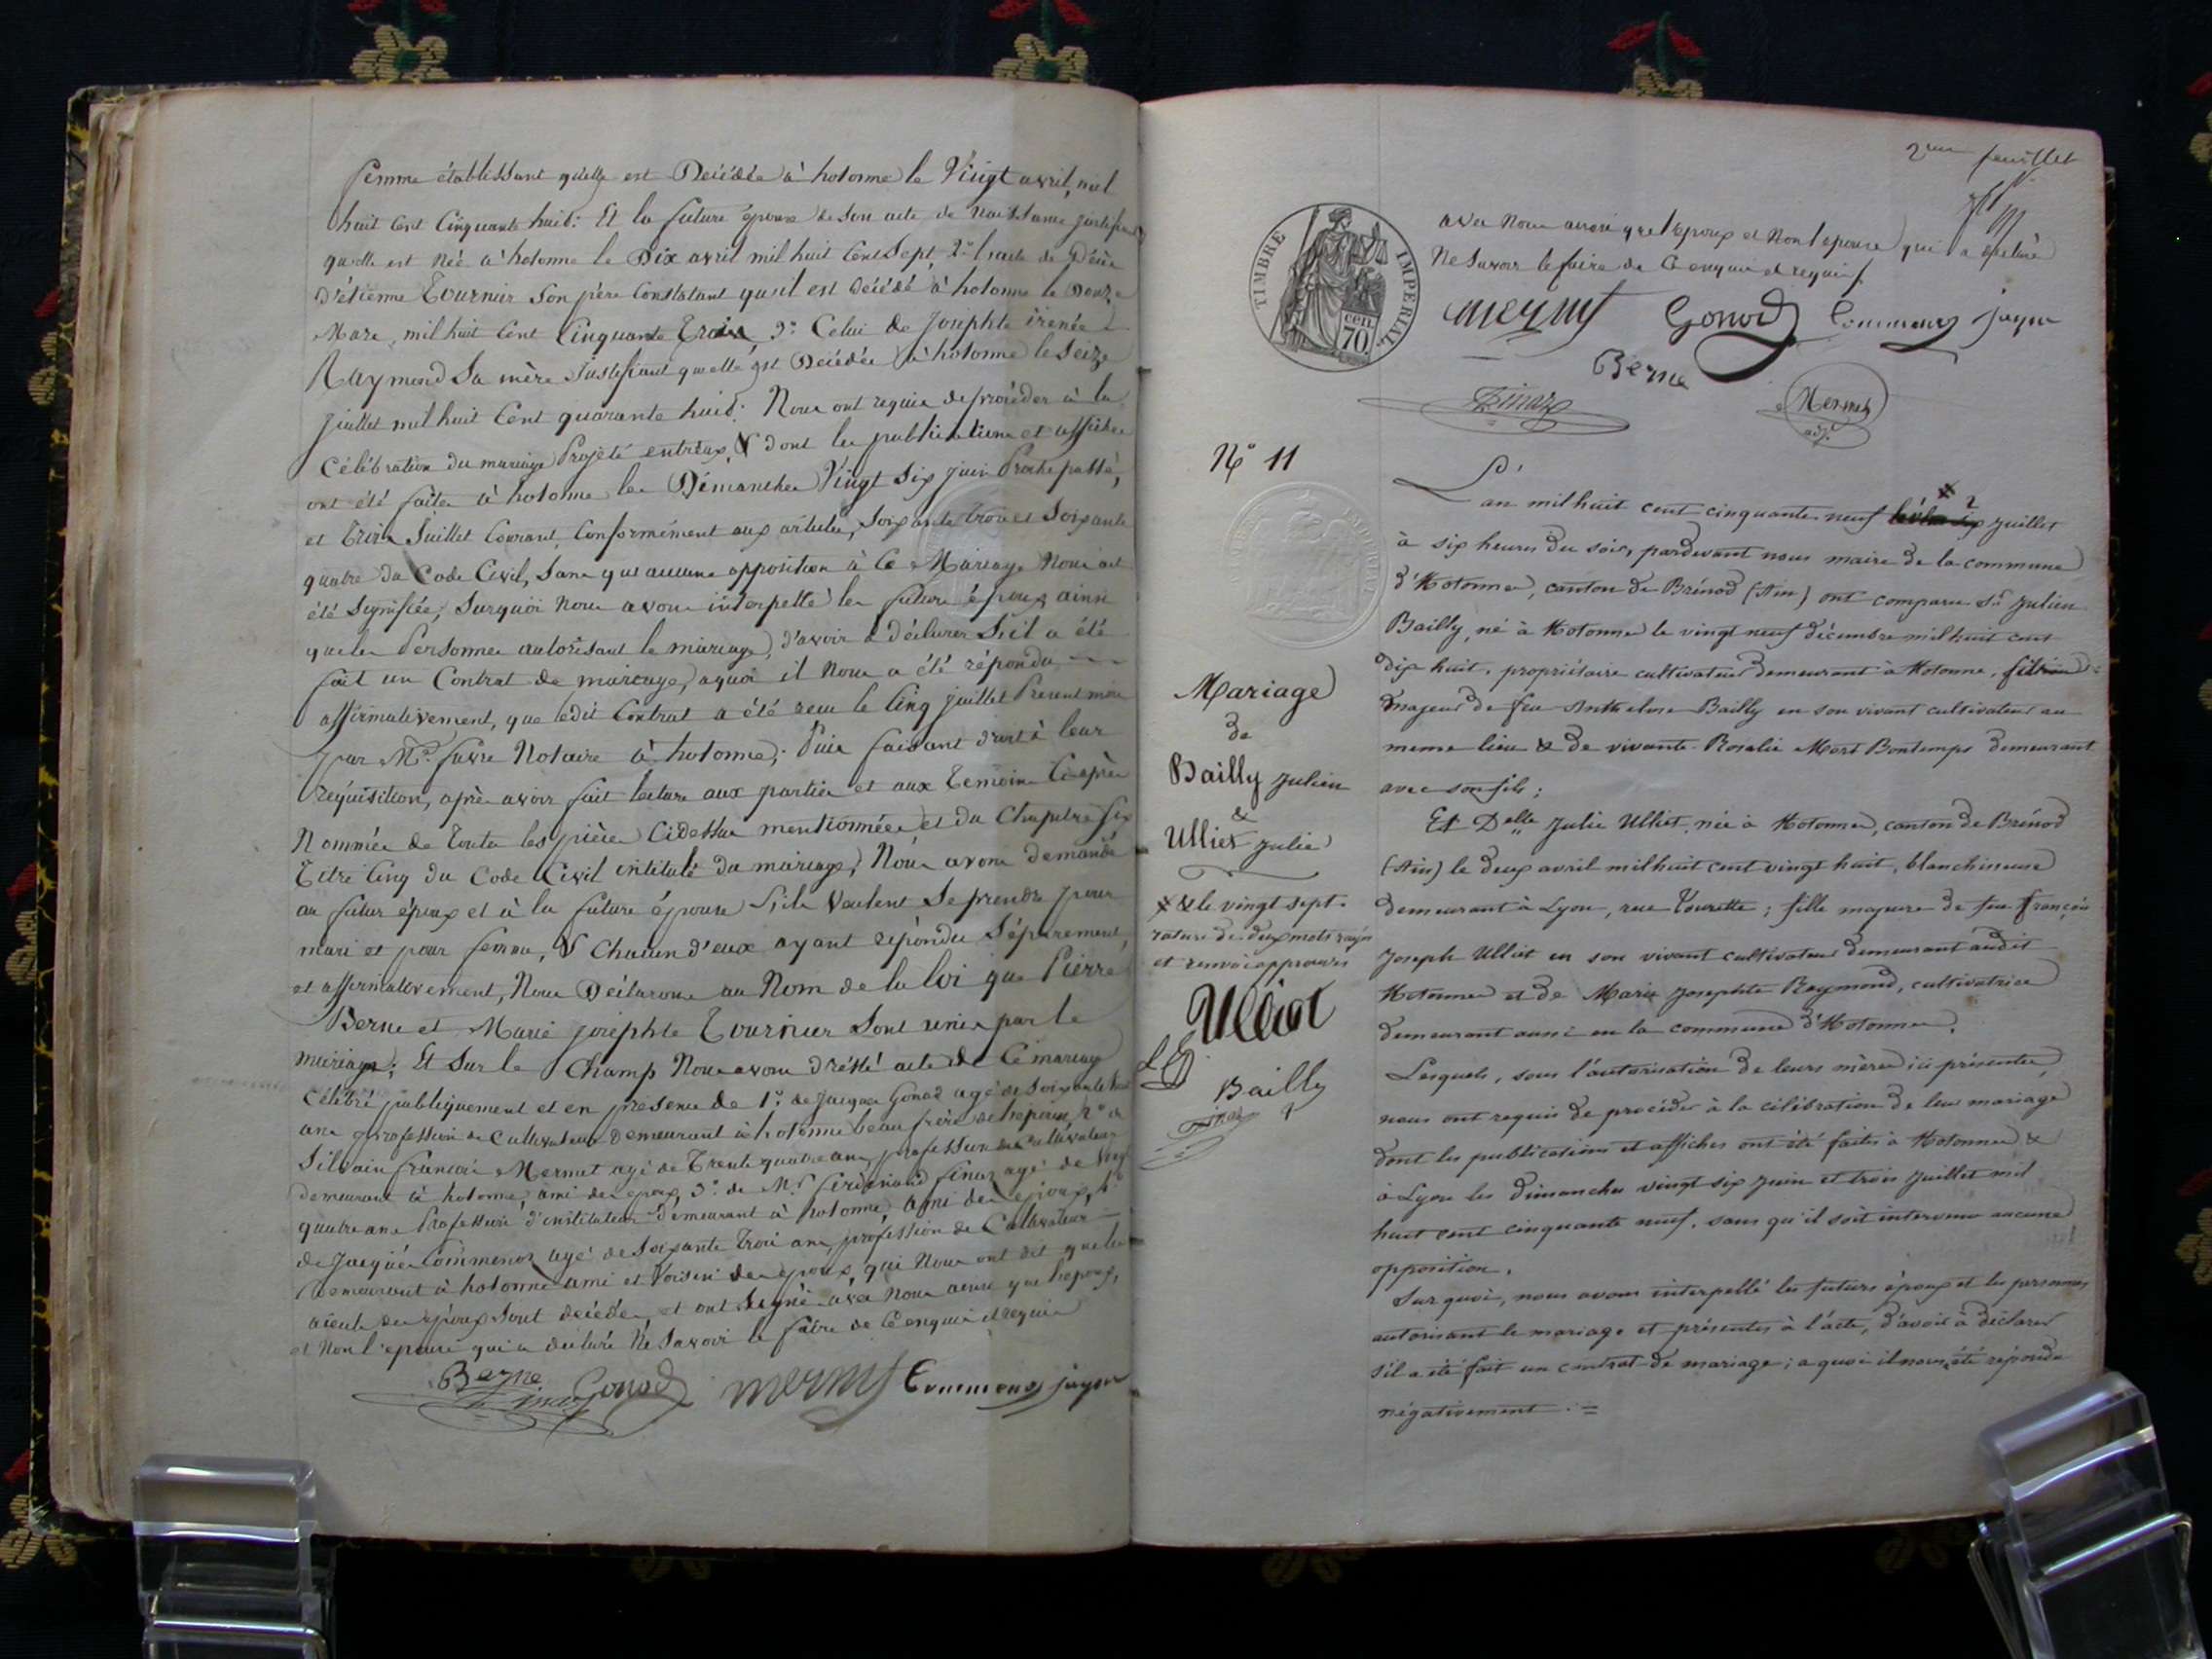 femme établissant qu'elle est Décédée à hotonne le Vingt avril, mil
huit Cent Cinquante huit: Et la future épouse de son acte de Naissance justifie
qu'elle est Née à hotonne le Dix avril mil huit Cent Sept, 2° l'acte de Décès
D'étienne Tournier Son père Constatant qu'il est décédé à hotonne le Douze
Mars, mil huit Cent Cinquante Trois 3° Celui de Josephte irenée
Raymond Sa mère Justifiant qu'elle est Décédée à hotonne le Seize
Juillet mil huit Cent quarante huit: Nous ont requis de procéder à la
Célébration du mariage Projeté entr'eux, & dont les publications et affiches
ont été faites à hotonne les Dimanches Vingt Six juin Proche passé,
et Trois Juillet Courant, Conformément aux articles, Soixante trois et Soixante
quatre du Code Civil, Sans que aucune opposition à Ce Mariage Nous ait
été Signifiée; Surquoi Nous avons interpellé les futurs époux ainsi
que les Personnes autorisant le mariage, d'avoir à déclarer S'il a été
fait un Contrat de mariage, aquoi il Nous a été répondu
affirmativement, que ledit Contrat a été recu le Cinq juillet Présent mois
par Me. favre Notaire à hotonne; Puis faisant droit à leur
réquisition, après avoir fait lecture aux parties et aux Temoins Ci-après
Nommés de Toutes les pièces Cidessus mentionnées et du Chapitre Six
Titre Cinq du Code Civil intitulé du mariage; Nous avons demandé
au futur époux et à la future épouse S'ils Veulent Se prendre pour
mari et pour femme, & Chacun d'eux ayant répondu Séparement,
et affirmativement, Nous Déclarons au Nom de la loi que Pierre
Berne et Marie josephte Tournier Sont unis par le
mariage; Et Sur le Champ Nous avons dréssé acte de Ce mariage
Célébré publiquement et en présence de 1°. de Jacques Gonod agé de Soixante
ans profession de Cultivateur Demeurant à hotonne beau frère de l'epoux, 2° de
Silvain françois Mermet agé de Trente quatre ans, profession de Cultivateur
demeurant à hotonne, ami des epoux, 3°. de Mr ferdinand finaz agé de
quatre ans Profession d'instituteur Demeurant à hotonne, ami des epoux, 4°
de Jacques Commenoz agé de Soixante Trois ans, profession de Cultivateur
Demeurant à hotonne ami et Voisin des epoux, qui Nous ont dit que les
aieuls des époux Sont décédés, et ont Signé avec Nous ainsi que l'epoux,
et Non l'epouse qui a declaré Ne Savoir le faire de Ce enquis et requis
Berne
Finaz Gonod Mermet Commenoz jayon
2me feuillet
TIMBRE IMPERIAL
cen. 70.
avec Nous ainsi que l'epoux et Non l'epouse qui a déclaré
Ne Savoir le faire de Ce enquis et requis
Mermet Gonod Commenoz jayon
Berne
Finaz Mermet
adjt
N° 11
L'an mil huit cent cinquante neuf juillet
à six heures du soir, pardevant nous maire de la commune
d'Hotonnes, canton de Brénod (Ain) ont comparu Sr Julien
Bailly, né à Hotonnes le vingt neuf décembre mil huit cent
dix huit, propriétaire cultivateur demeurant à Hotonne, fils
majeur de feu Anthelme Bailly en son vivant cultivateur au
meme lieu & de vivante Rosalie Mort Bontemps demeurant
avec son fils;
Et Delle Julie Ulliet, née à Hotonnes, canton de Brénod
(Ain) le deux avril mil huit cent vingt huit, blanchisseuse
demeurant à Lyon, rue Tourette; fille majeure de feu françois
Joseph Ulliet en son vivant cultivateur demeurant audit
Hotonnes et de Marie Josephte Raymond, cultivatrice
demeurant aussi en la commune d'Hotonnes.
Lesquels, sous l'autorisation de leurs mères ici présentes,
nous ont requis de procéder à la célébration de leur mariage
dont les publications et affiches ont été faites à Hotonnes &
à Lyon les dimanches vingt six juin et trois juillet mil
huit cent cinquante neuf, sans qu'il soit intervenu aucune
opposition.
Sur quoi, nous avons interpellé les futurs époux et les personnes
autorisant le mariage et présentes à l'acte, d'avoir à déclarer
s'il a été fait un contrat de mariage; a quoi il nous été répondu
négativement. =
Mariage
de
Bailly Julien
&
Ulliet Julie
& le vingt sept.
rature de deux mots rayés
et renvoi approuvés
Ulliet
Bailly
Finaz